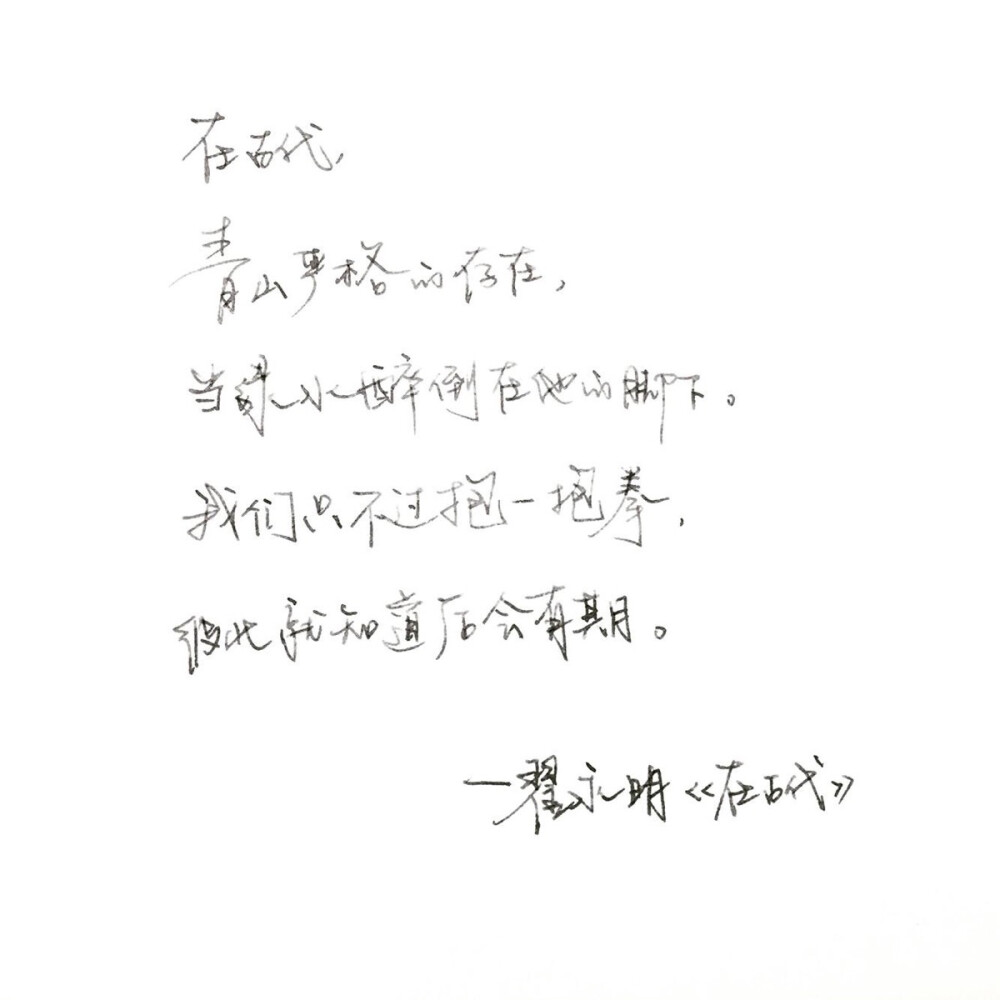 在古代，
青山严格的存在，
当绿水醉倒在他的脚下。
我们只不过抱一抱拳，
彼此就知道后会有期。
—翟永明《在古代》